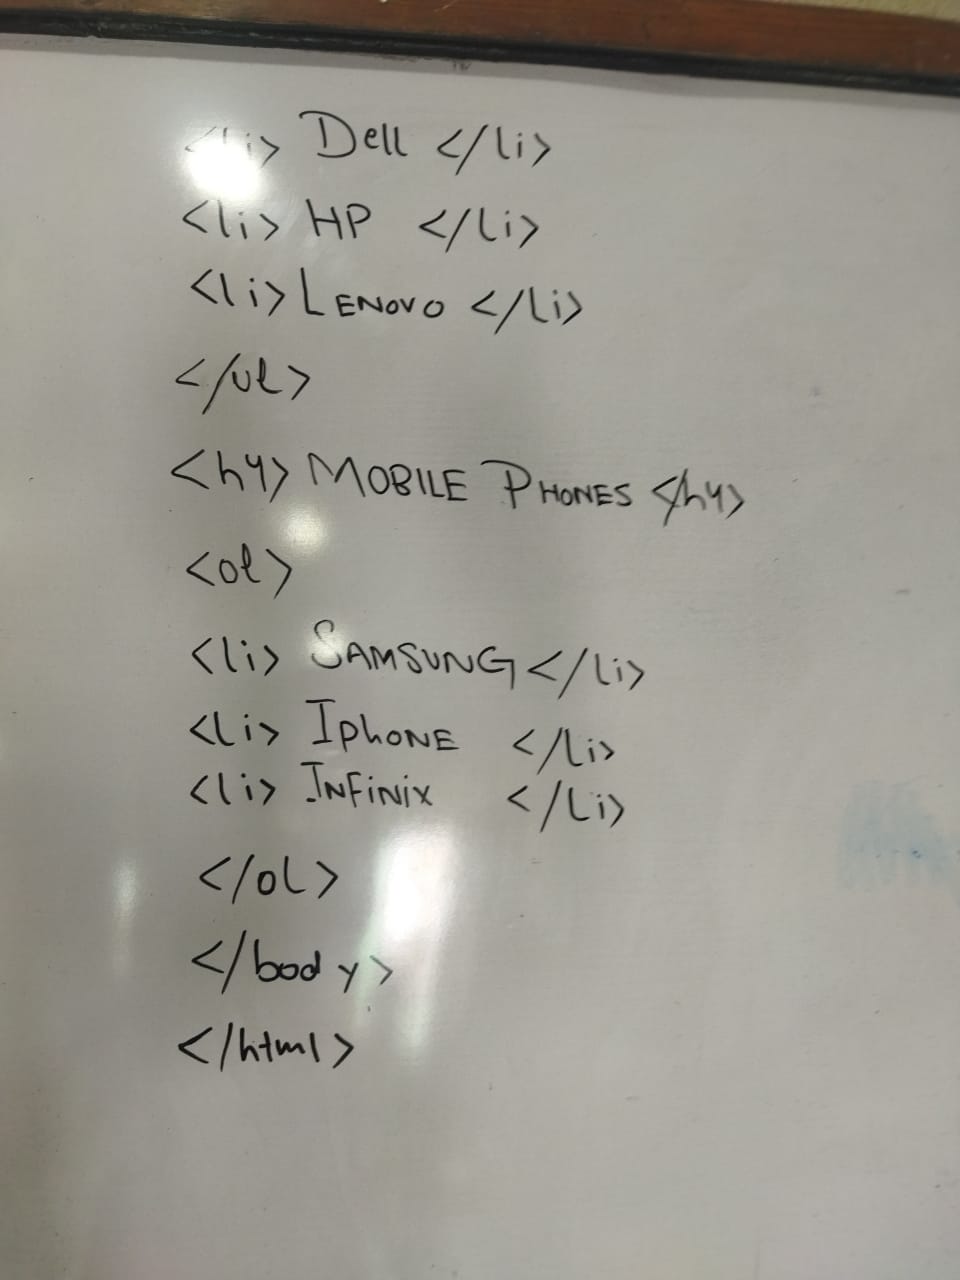 <li> Dell </li>
<li> HP </li>
<li> LENOVO </li>
</ul>
<h4> MOBILE PHONES </h4>
<ol>
<li> SAMSUNG </li>
<li> IphONE </li>
<li> INFiNiX </li>
</ol>
</body>
</html>